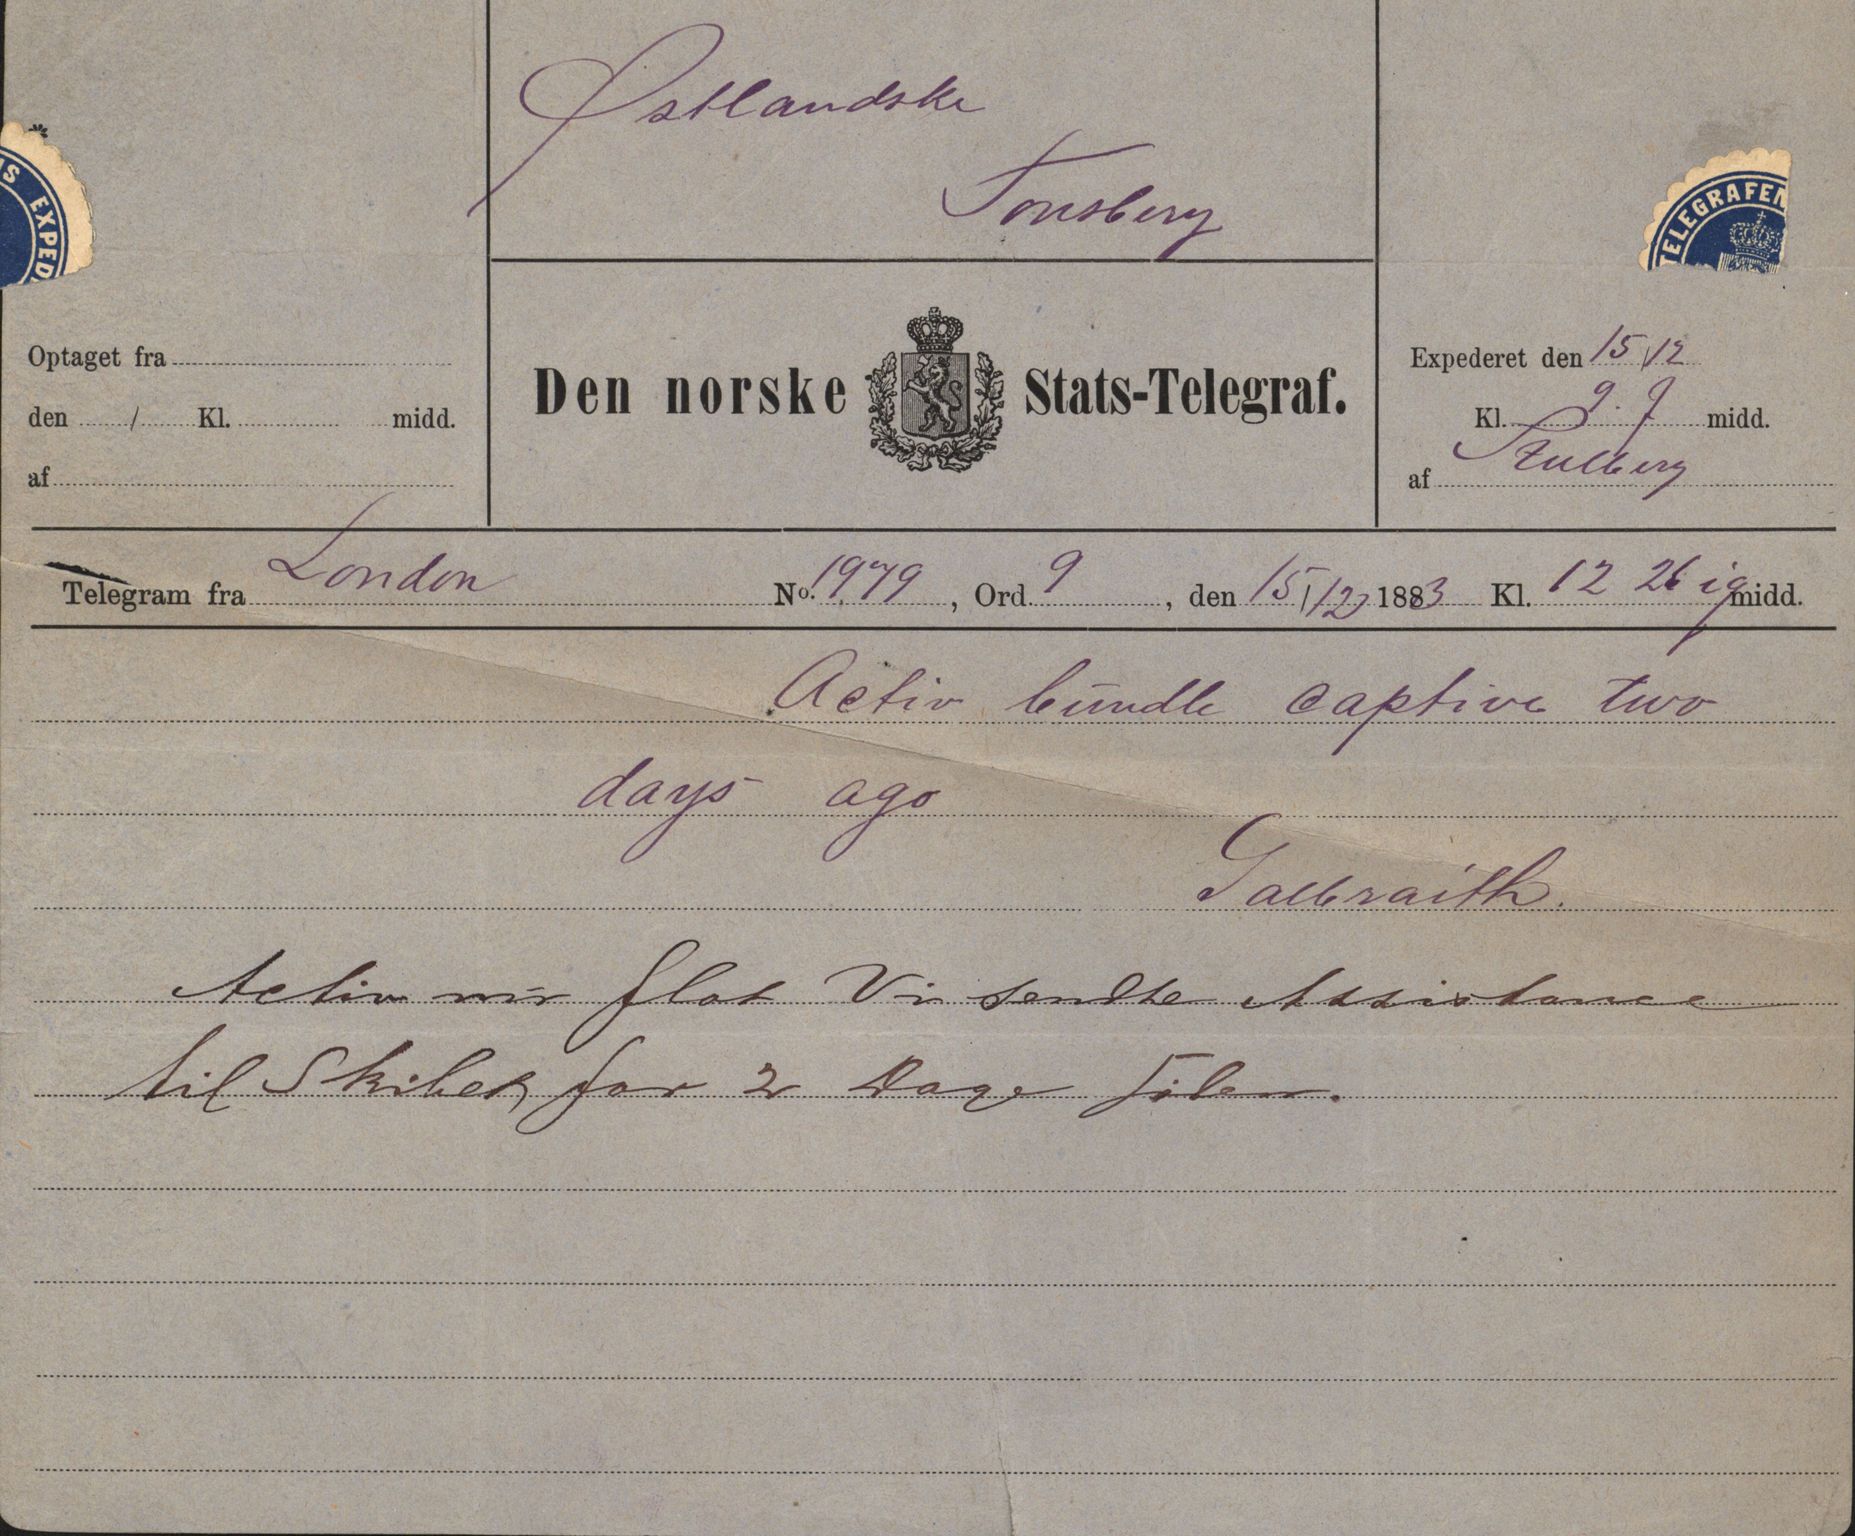 Østlandske
Tonsberg
IS EXPED
TELEGRAFEN
Optaget fra
den / Kl. midd.
af
Den norske Stats-Telegraf.
Expederet den 15/12
Kl. 9. f midd.
af
Telegram fra London No. 1979, Ord 9, den 15/12 1883 Kl. 12 26 midd.
Activ bundle captive two
days ago
Galbraith.
Activ er flot Vi sendte Assistance
til Skibet for 2 Dage siden.